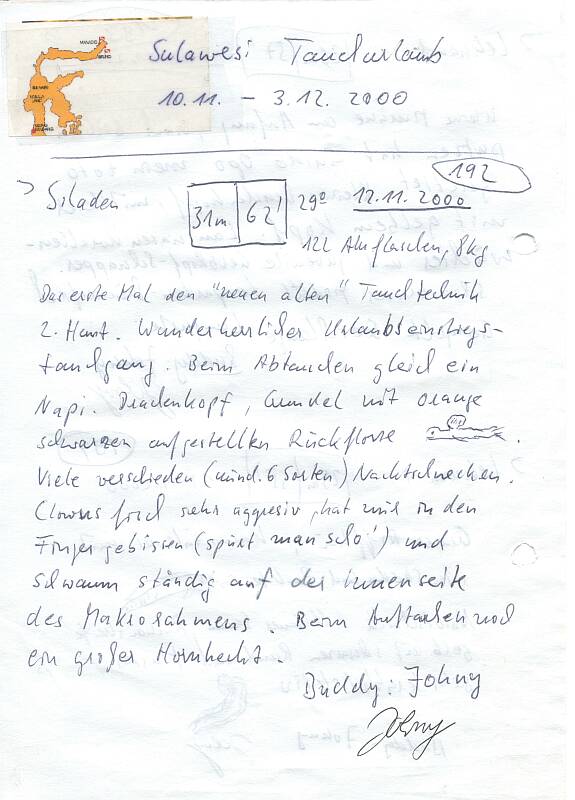 MANADO
Sulawesi Tauchurlaub
10.11. – 3.12. 2000
192
Siladen 31m 62' 29° 12.11.2000
12L Aluflaschen, 8kg
Das erste Mal den "neuen alten" Tauchtechnik
2. Haut. Wunderherrlicher Urlaubseinstiegs-
tauchgang. Beim Abtauchen gleich ein
Napi. Drachenkopf, Grundel mit orange
schwarzen aufgestellten Rückflosse .
Viele verschieden (mind. 6 Sorten) Nacktschnecken.
Clownsfisch sehr aggresiv, hat mir in den
Finger gebissen (spürt man scho!) und
schwamm ständig auf der Innenseite
des Makrorahmens. Beim Auftauchen noch
ein großer Hornhecht.
Buddy: Johny
Johny